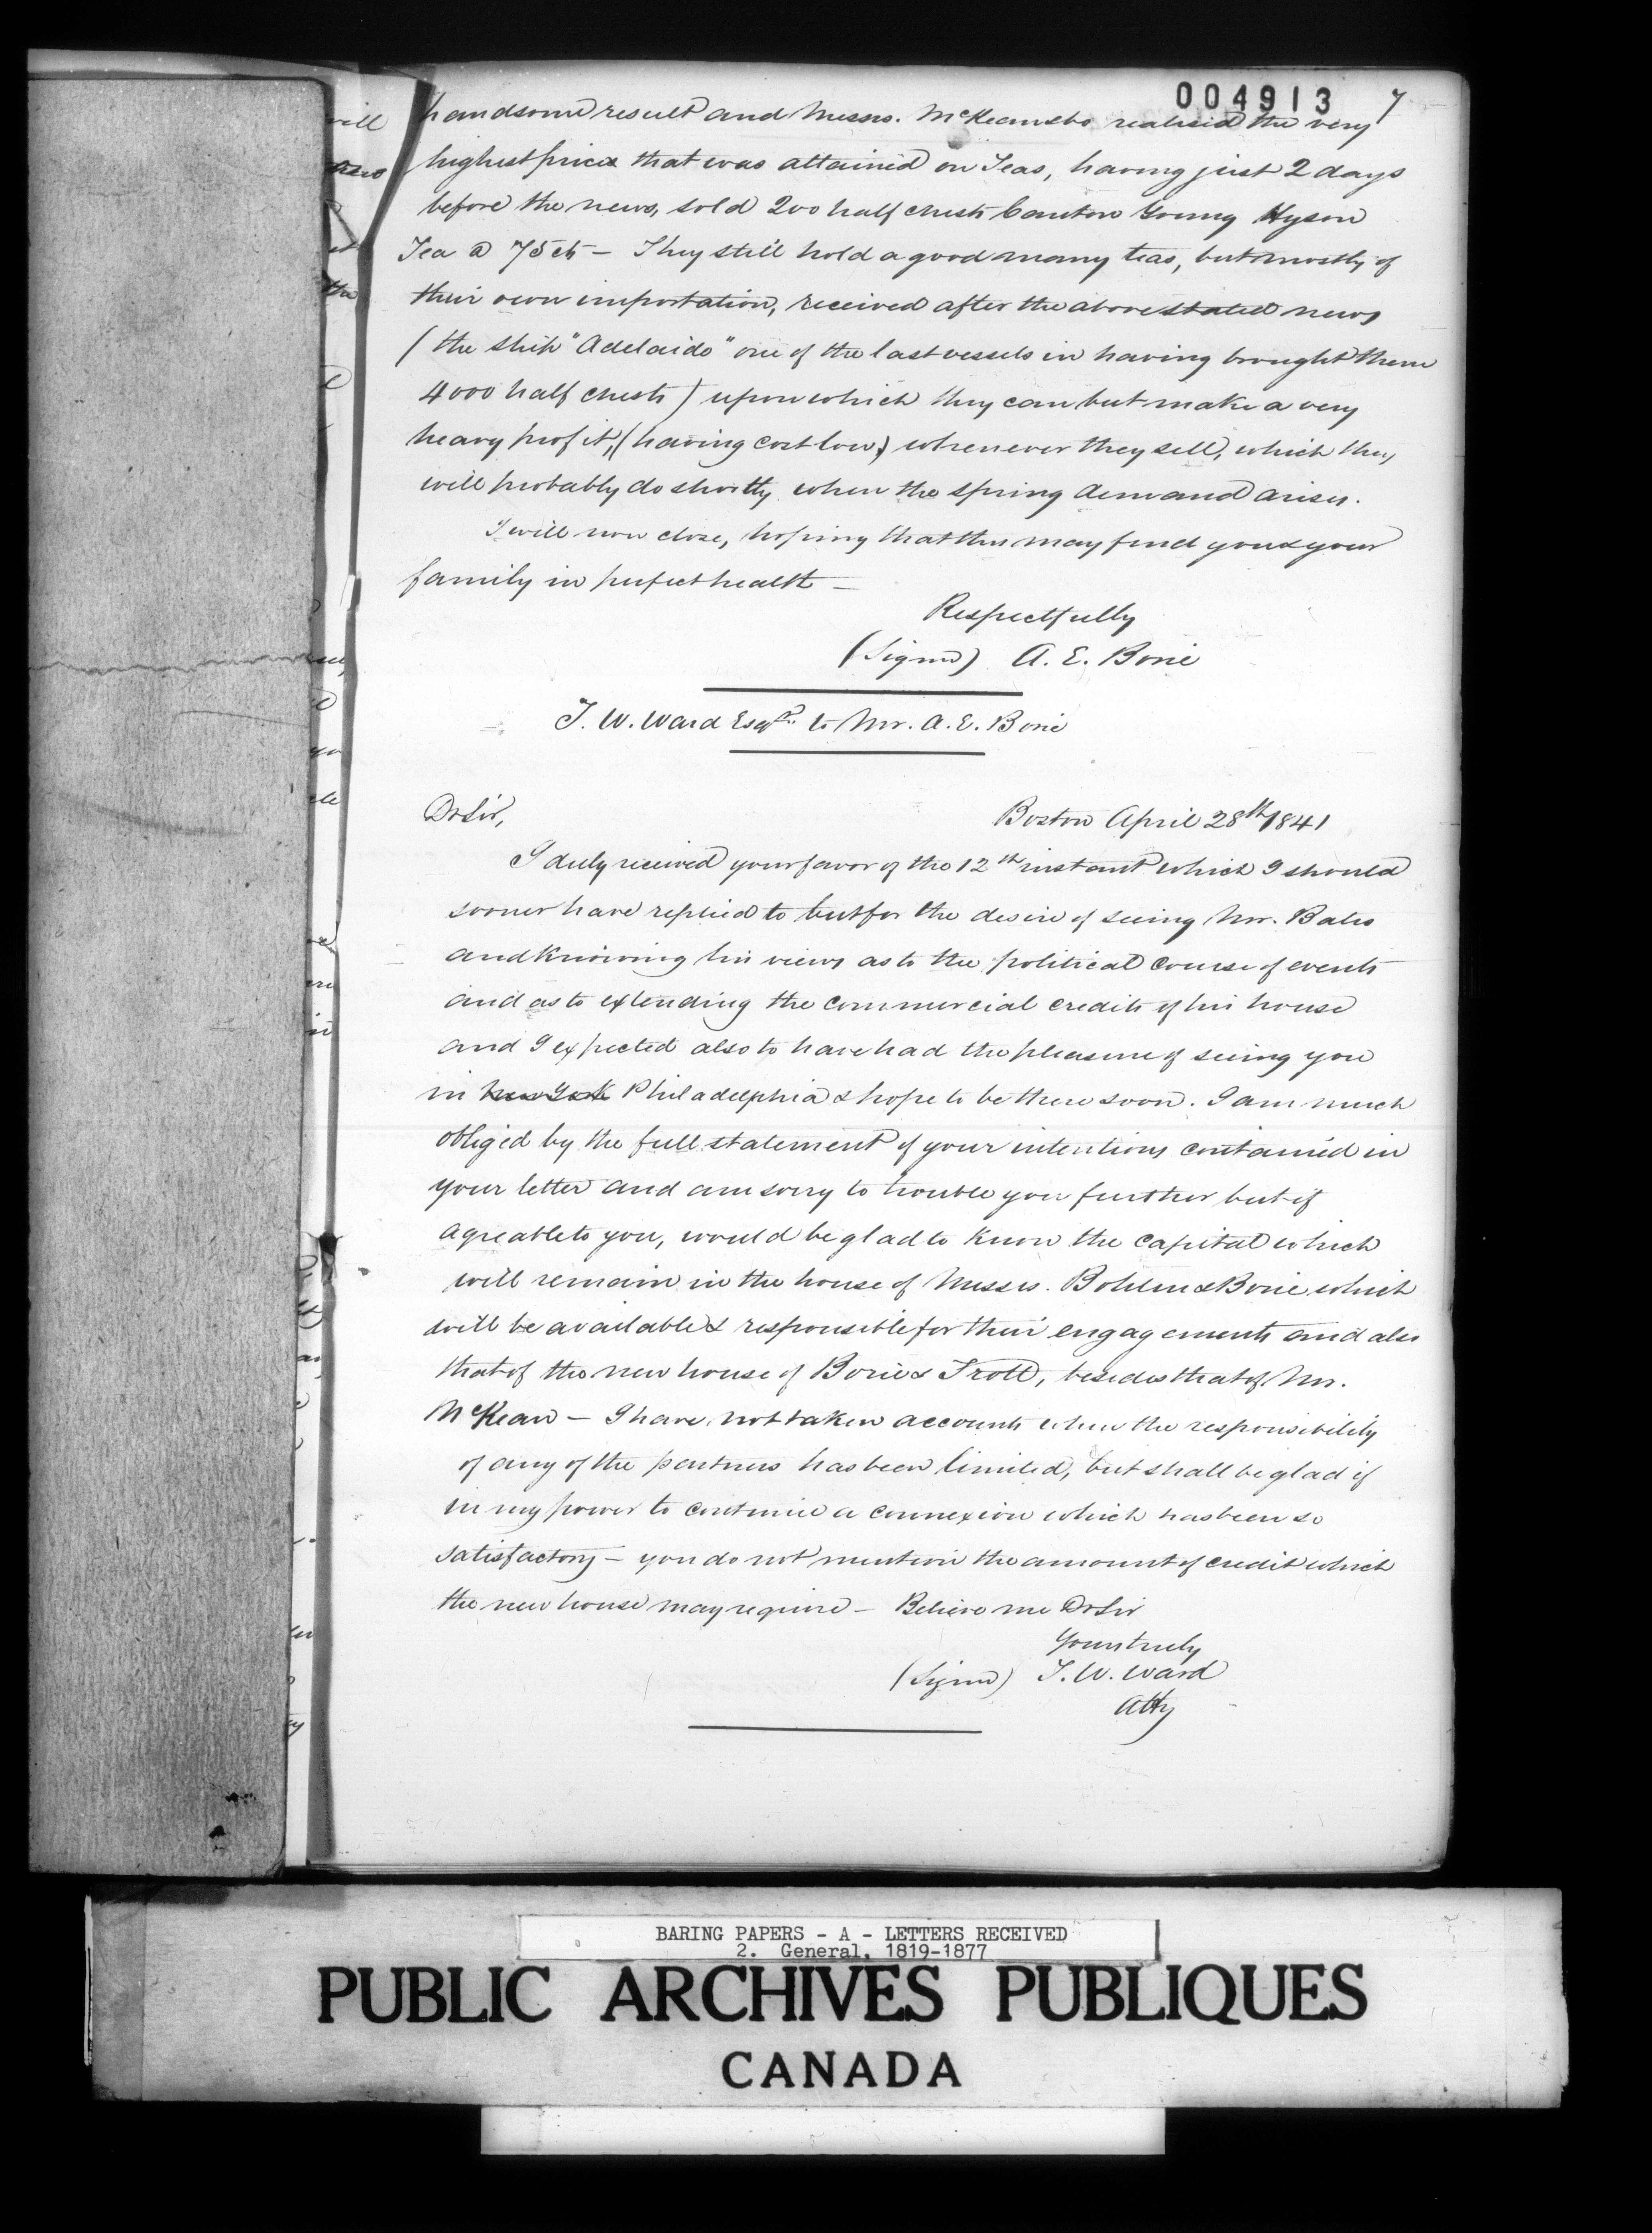 004913 7
handsome result and Messrs. McKean &Co realised the very
highest prices that was attained on Teas, having just 2 days
before the news, sold 200 half chests Canton Young Hyson
Tea @ 75 cts — They still hold a good many teas, but mostly of
their own importation, received after the above stated news
(the ship "Adelaide" one of the last vessels in having brought them
4000 half chests) upon which they can but make a very
heavy profit, (having cost low) whenever they sell, which they
will probably do shortly when the spring demand arises.
I will now close, hoping that this may find you & your
family in perfect health —
Respectfully
(Signed) A. E. Borie
T. W. Ward Esqr. to Mr. A. E. Borie
Dr Sir,
Boston April 28th 1841
I duly received your favor of the 12th instant which I should
sooner have replied to but for the desire of seeing Mr. Bates
and knowing his views as to the political course of events
and as to extending the commercial credits of his house
and I expected also to have had the pleasure of seeing you
in New York Philadelphia & hope to be there soon. I am much
obliged by the full statement of your intentions contained in
your letter and am sorry to trouble you further but if
agreable to you, would be glad to know the capital which
will remain in the house of Messrs. Bohlen & Borie which
will be available & responsible for their engagements and also
that of the new house of Borie & Trott, besides that of Mr.
McKean — I have not taken accounts when the responsibility
of any of the partners has been limited, but shall be glad if
in my power to continue a connexion which has been so
satisfactory — you do not mention the amount of credit which
the new house may require — Believe me Dr Sir
Yours truly
(Signed) T. W. Ward
Atty
BARING PAPERS - A - LETTERS RECEIVED
2. General, 1819-1877
PUBLIC ARCHIVES PUBLIQUES
CANADA